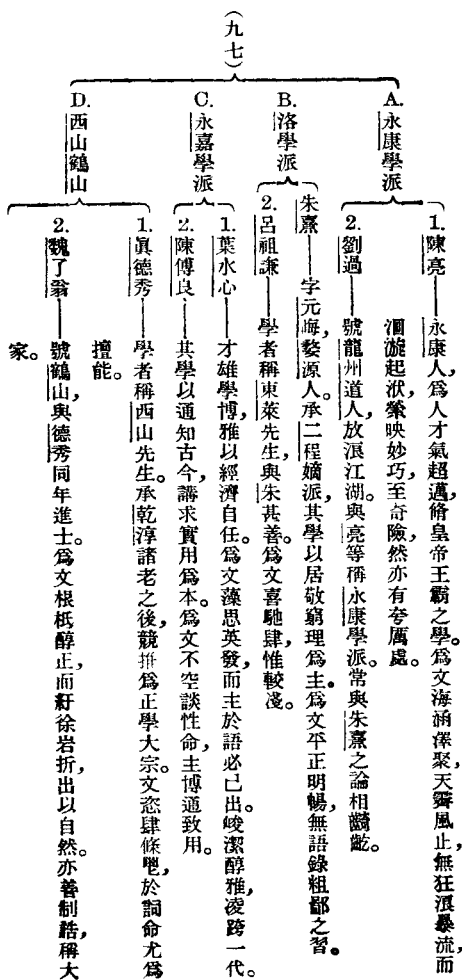 （九七）
A. 永康學派
1. 陳亮——永康人，爲人才氣超邁，脩皇帝王霸之學。爲文海涵澤聚，天霽風止，無狂浪暴流，而
洄漩起洑，縈映妙巧，至奇險，然亦有夸厲處。
2. 劉過——號龍州道人，放浪江湖。與亮等稱永康學派。常與朱熹之論相齟齕。
B. 洛學派
朱熹——字元晦，婺源人。承二程嫡派，其學以居敬窮理爲主。爲文平正明暢，無語錄粗鄙之習。
2. 呂祖謙——學者稱東萊先生，與朱甚善。爲文喜馳肆，惟較淺。
C. 永嘉學派
1. 葉水心——才雄學博，雅以經濟自任。爲文藻思英發，而主於語必己出。峻潔醇雅，凌跨一代。
2. 陳傅良——其學以通知古今，講求實用爲本。爲文不空談性命，主博通致用。
D. 西山鶴山
1. 眞德秀——學者稱西山先生。承乾淳諸老之後，競推爲正學大宗。文恣肆條鬯，於詞命尤爲
擅能。
2. 魏了翁——號鶴山，與德秀同年進士。爲文根柢醇正，而紆徐岩折，出以自然。亦善制誥，稱大
家。